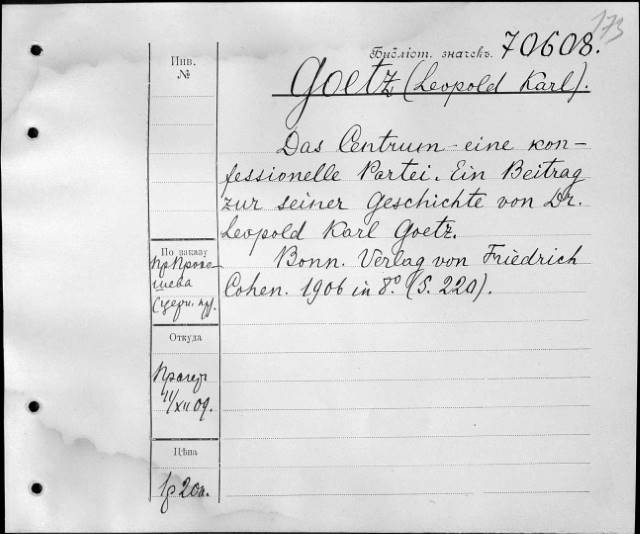 173
Библіот. значекъ. 70608.
Goetz (Leopold Karl).
Инв.
№
Das Centrum - eine kon-
fessionelle Partei. Ein Beitrag
zur seiner Geschichte von Dr.
Leopold Karl Goetz.
Bonn. Verlag von Friedrich
Cohen. 1906 in 8° (S. 220).
По заказу
Откуда
11/XII 09.
Цѣна